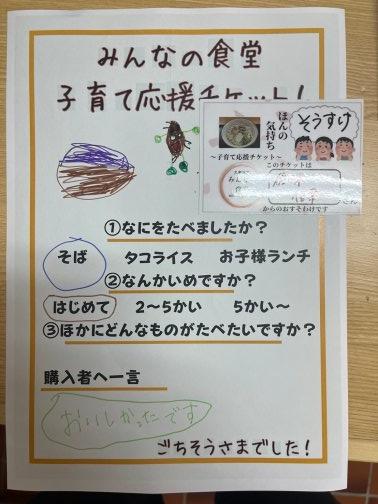 みんなの食堂
子育て応援チケット!
ほんの
気持ち
そうすけ
～子育て応援チケット～
このチケットは
さん
からのおすそわけです
①なにをたべましたか？
そば　タコライス　お子様ランチ
②なんかいめですか？
はじめて　2～5かい　5かい～
③ほかにどんなものがたべたいですか？
購入者へ一言
おいしかったです
ごちそうさまでした!